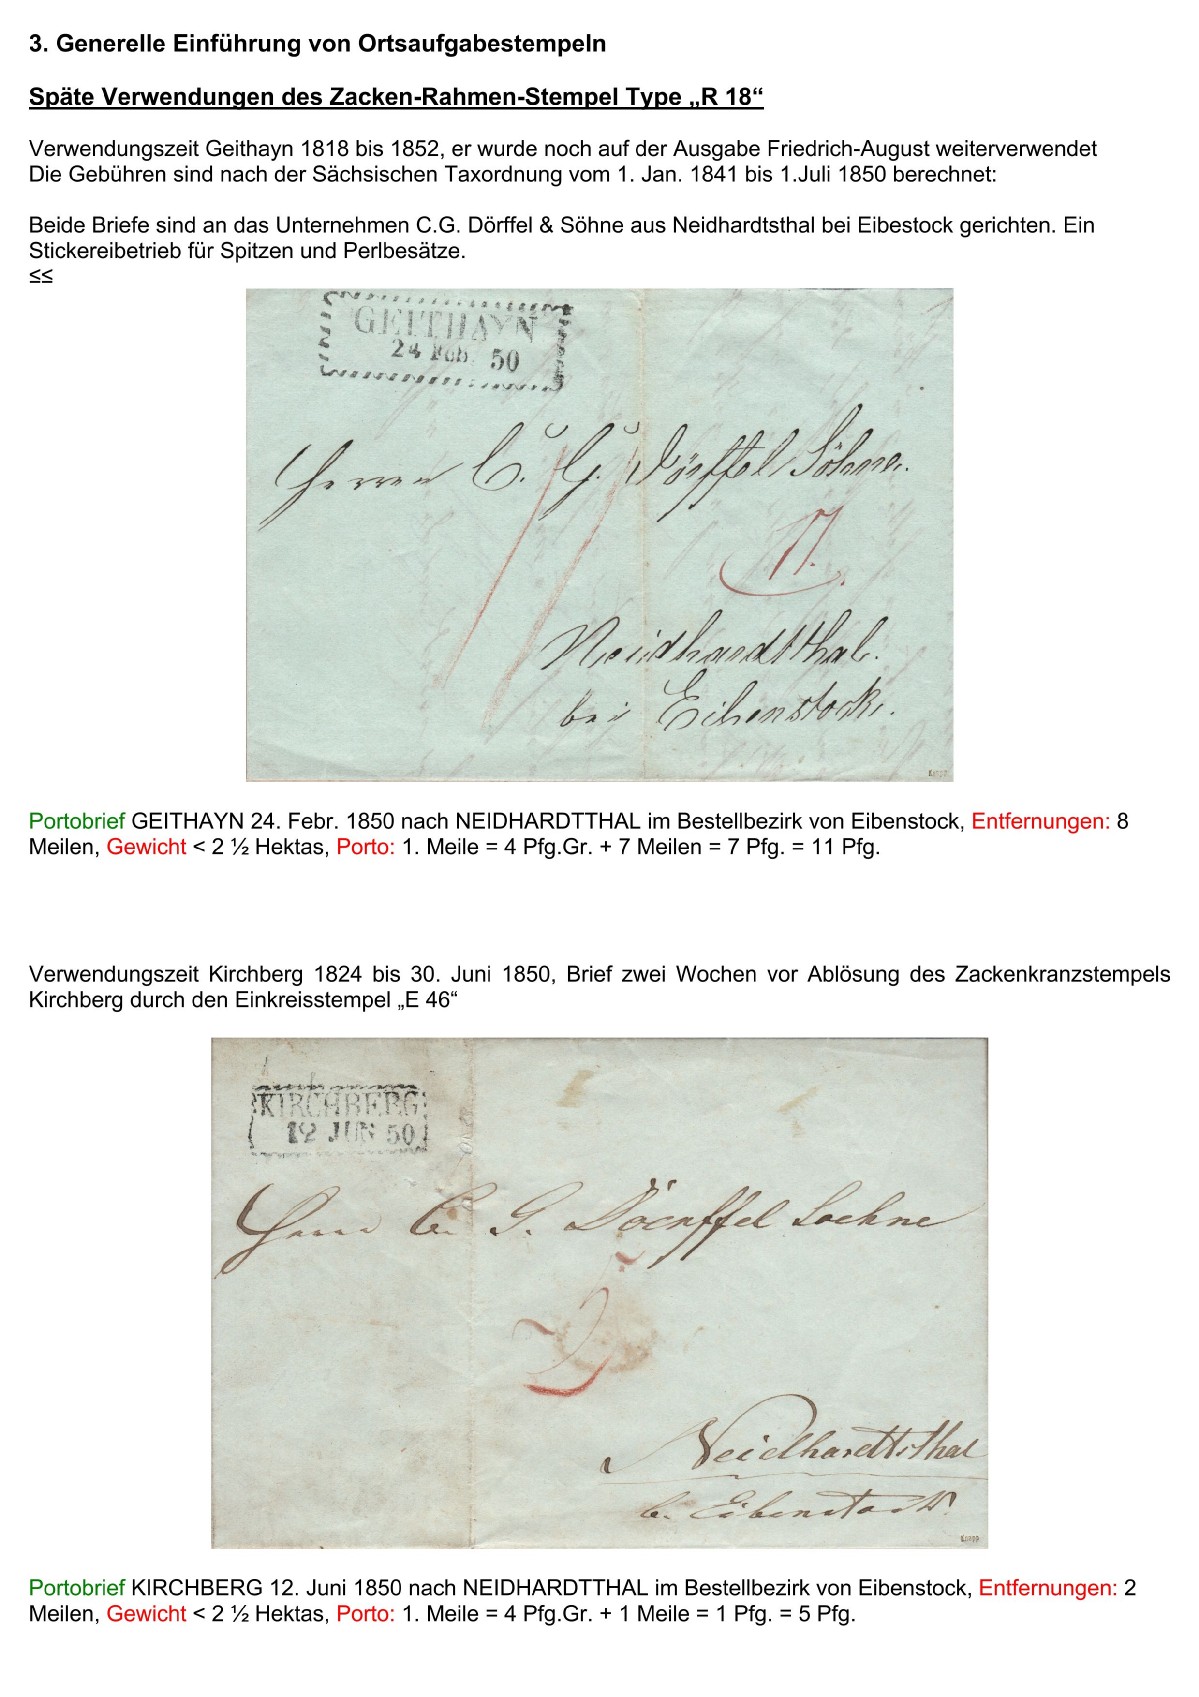 3. Generelle Einführung von Ortsaufgabestempeln
Späte Verwendungen des Zacken-Rahmen-Stempel Type „R 18“
Verwendungszeit Geithayn 1818 bis 1852, er wurde noch auf der Ausgabe Friedrich-August weiterverwendet
Die Gebühren sind nach der Sächsischen Taxordnung vom 1. Jan. 1841 bis 1.Juli 1850 berechnet:
Beide Briefe sind an das Unternehmen C.G. Dörffel & Söhne aus Neidhardtsthal bei Eibestock gerichten. Ein
Stickereibetrieb für Spitzen und Perlbesätze.
≤≤
GEITHAYN
24 Feb. 50
Herren C. G. Dörffel Söhne.
11.
Neidhardtthal.
bei Eibenstock.
Knapp
Portobrief GEITHAYN 24. Febr. 1850 nach NEIDHARDTTHAL im Bestellbezirk von Eibenstock, Entfernungen: 8
Meilen, Gewicht < 2 ½ Hektas, Porto: 1. Meile = 4 Pfg.Gr. + 7 Meilen = 7 Pfg. = 11 Pfg.
Verwendungszeit Kirchberg 1824 bis 30. Juni 1850, Brief zwei Wochen vor Ablösung des Zackenkranzstempels
Kirchberg durch den Einkreisstempel „E 46“
KIRCHBERG
12 JUN 50
Herrn C. G. Doerffel Soehne
5
Neidhardtsthal
b. Eibenstock
Knapp
Portobrief KIRCHBERG 12. Juni 1850 nach NEIDHARDTTHAL im Bestellbezirk von Eibenstock, Entfernungen: 2
Meilen, Gewicht < 2 ½ Hektas, Porto: 1. Meile = 4 Pfg.Gr. + 1 Meile = 1 Pfg. = 5 Pfg.